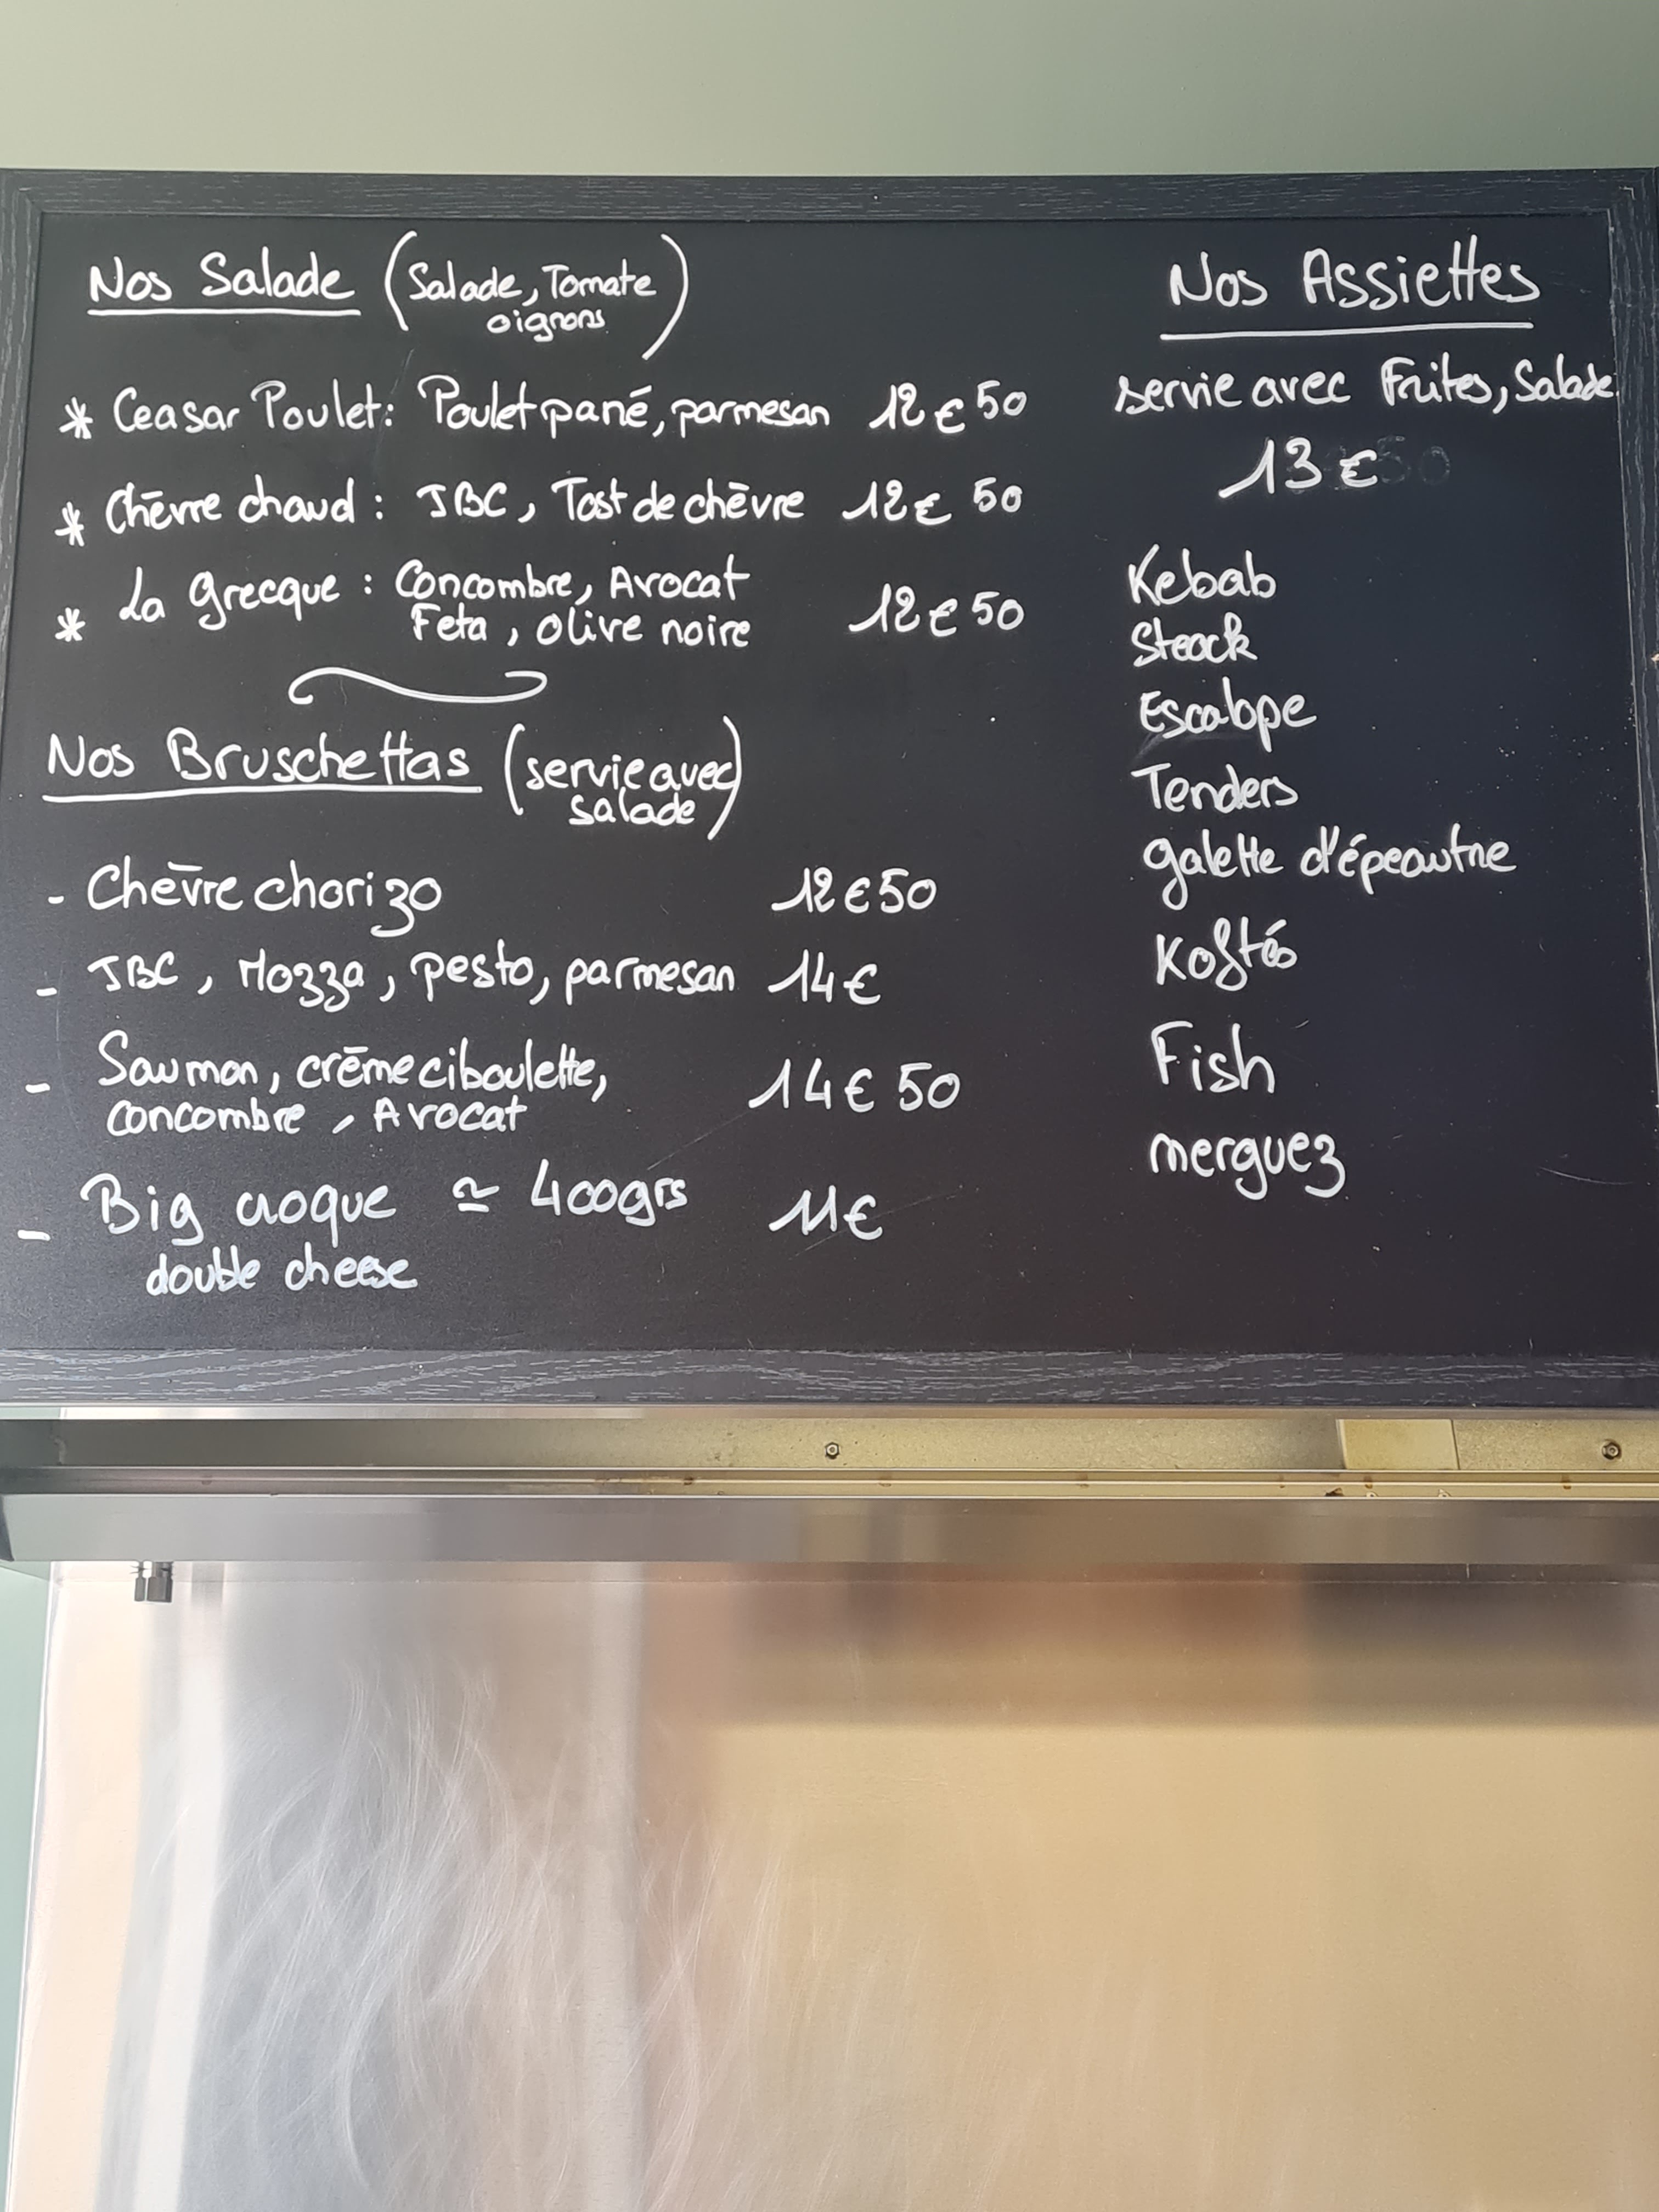 Nos Salade (Salade, Tomate
oignons)
* Ceasar Poulet: Poulet pané, parmesan 12€50
* Chèvre chaud : JBC, Tost de chèvre 12€ 50
* La grecque : Concombre, Avocat
Feta, Olive noire 12€50
Nos Bruschettas (servie avec
salade)
- Chèvre chorizo 12€50
- JBC, Mozza, pesto, parmesan 14€
- Saumon, crème ciboulette,
concombre, Avocat 14€50
- Big croque ≃ 400grs 11€
double cheese
Nos Assiettes
servie avec Frites, Salade
13€
Kebab
Steack
Escalope
Tenders
galette d'épeautre
Koftés
Fish
merguez